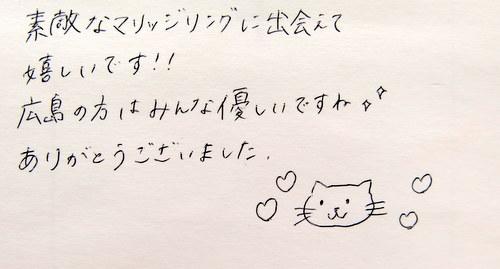 素敵なマリッジリングに出会えて
嬉しいです!!
広島の方はみんな優しいですね
ありがとうございました.